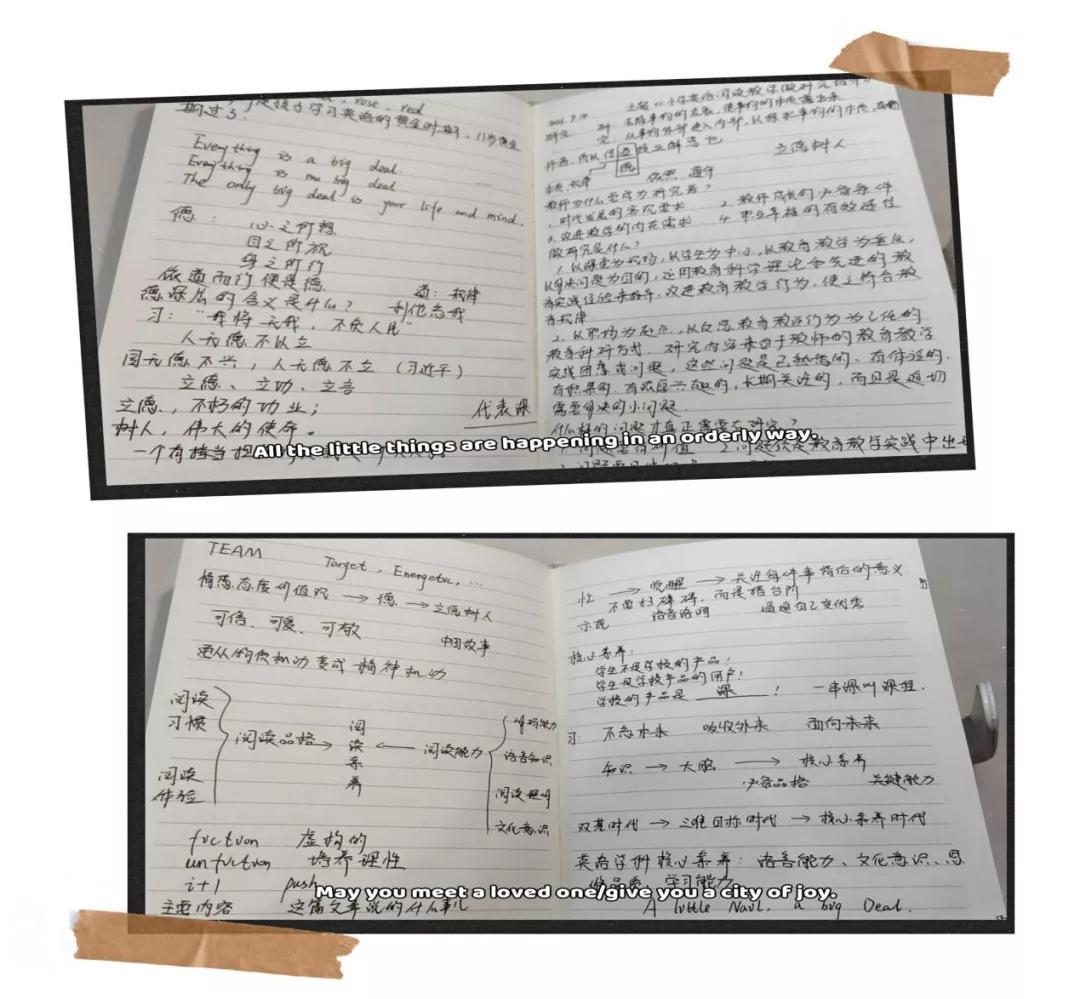 rose, red
期过了.
Everything is a big deal.
Everything is no big deal
The only big deal is your life and mind.
德: 心之所想
目之所视
身之所行
依道而行便是德. 道: 规律
德深层的含义是什么? 利他忘我
习: “我将无我, 不负人民”
人无德不以立
国无德不兴, 人无德不立 (习近平)
立德、立功、立言
立德, 不朽的功业;
树人, 伟大的使命。
代表课
一个有担当
立德树人
德 依照 遵守
教师为什么要成为研究者?
1. 时代发展的客观需求 2. 教师成长的必备条件
3. 改进教学的内在需求 4. 职业幸福的有效途径
做研究是什么?
1. 以课堂为现场, 以学生为中心, 以教育教学为重点,
以解决问题为目的, 运用教育科学理论和先进的教
育实践经验来指导, 改进教育教学行为, 使之符合教
育规律.
2. 从职场为起点, 以反思教育教学行为为己任的
教育科研方式. 研究内容来自于教师的教育教学
实践困惑或问题, 这些问题是已熟悉的、有体验的.
有积累的. 有浓厚兴趣的, 长期关注的, 而且是迫切
需要解决的小问题.
什么样的问题才真正需要去研究?
1. 问题要有价值 2. 问题须是教育教学实践中出
All the little things are happening in an orderly way.
TEAM Target, Energetic, ...
情感态度价值观 → 德 → 立德树人
可信、可爱、可敬 中国故事
更从的负机动变成精神机动
阅读习惯
阅读体验
阅读品格 → 阅读素养 ← 阅读能力
解码能力
语言知识
阅读理解
文化意识
fuction 虚构的
unfuction 培养理性
i+1 push
主要内容 这篇文章说的什么事儿
性 → 觉醒 → 关注每件事背后的意义
不要扫障碍, 而是搭台阶
示范 语音语调 通过自己变优秀
核心素养:
学生不是学校的产品!
学生是学校产品的用户!
学校的产品是 课 ! 一串课叫课程.
习: 不忘本来 吸收外来 面向未来
知识 → 大脑 → 核心素养
必备品格 关键能力
双基时代 → 三维目标时代 → 核心素养时代
英语学科核心素养: 语言能力、文化意识、思
维品质、学习能力
A little Nail. a big Deal.
May you meet a loved one/give you a city of joy.